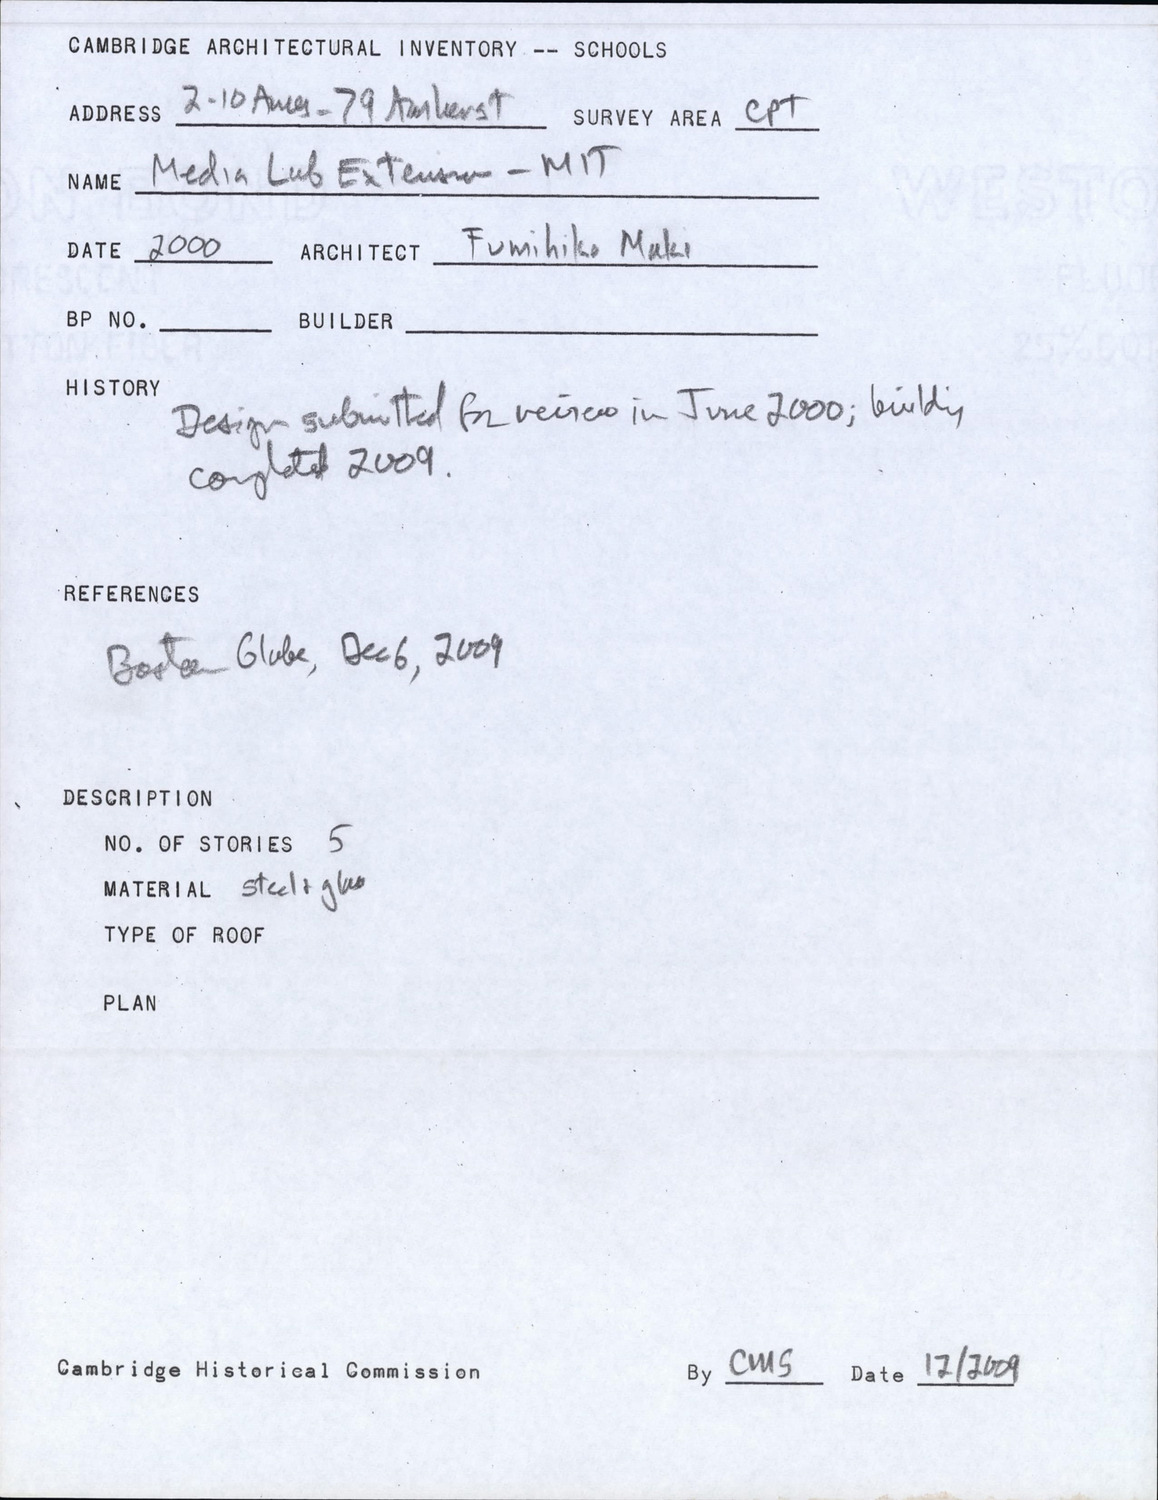 CAMBRIDGE ARCHITECTURAL INVENTORY -- SCHOOLS
ADDRESS 2-10 Ames - 79 Amherst SURVEY AREA CPT
NAME Media Lab Extension - MIT
DATE 2000 ARCHITECT Fumihiko Maki
BP NO. BUILDER
HISTORY
Design submitted for review in June 2000; building
completed 2009.
REFERENCES
Boston Globe, Dec 6, 2009
DESCRIPTION
NO. OF STORIES 5
MATERIAL steel + glass
TYPE OF ROOF
PLAN
Cambridge Historical Commission By CMS Date 12/2009